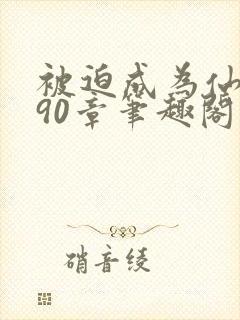 被迫成为仙
90章笔趣阁
硝音绫